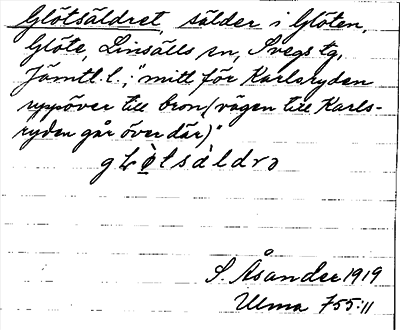 Glötsäldret, sälder i Glöten,
Glöte, Linsälls sn, Svegs tg,
Jämtl. l.; "mitt för Karlsryden
uppöver till bron (vägen till Karls-
ryden går över där)"
gɫø̀tsàldrə
S. Åsander 1919
Ulma 755:11